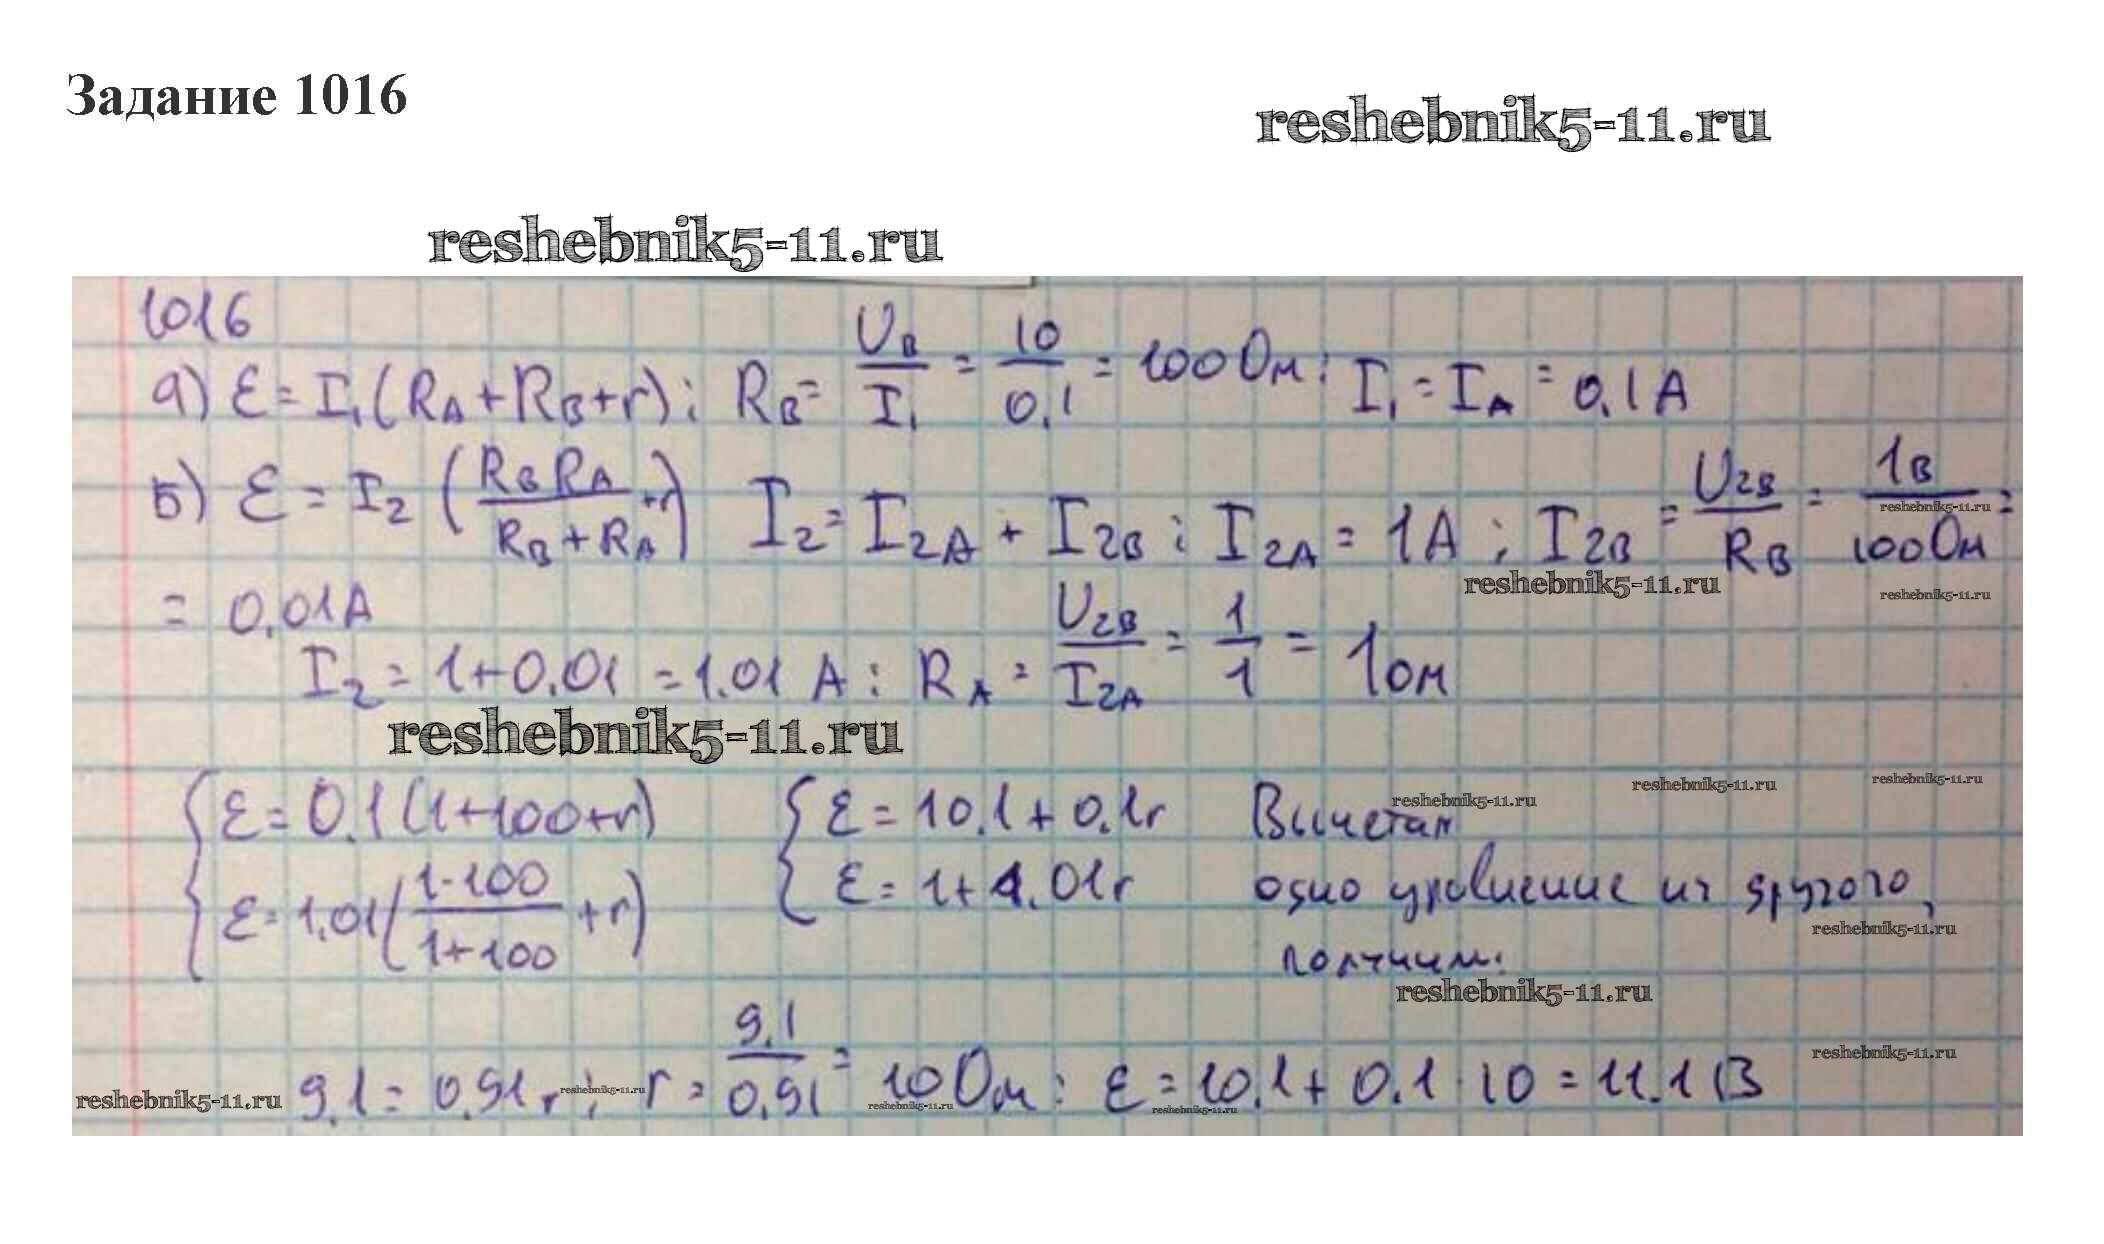 Задание 1016
reshebnik5-11.ru
reshebnik5-11.ru
1016
а) ε = I₁(R_A + R_B + r); R_B = U_B / I₁ = 10 / 0,1 = 100 Ом; I₁ = I_A = 0,1 А
б) ε = I₂ (R_B R_A / (R_B + R_A) + r) I₂ = I₂A + I₂B; I₂A = 1A; I₂B = U₂B / R_B = 1В / 100 Ом =
reshebnik5-11.ru
reshebnik5-11.ru
reshebnik5-11.ru
= 0,01А
I₂ = 1 + 0,01 = 1,01 А; R_A = U₂B / I₂A = 1 / 1 = 1 Ом
reshebnik5-11.ru
reshebnik5-11.ru
reshebnik5-11.ru
reshebnik5-11.ru
{ ε = 0,1(1+100+r) { ε = 10,1 + 0,1r Вычетам
ε = 1,01(1·100 / (1+100) + r) ε = 1 + 1,01r одно уравнение из другого,
reshebnik5-11.ru
получим:
reshebnik5-11.ru
reshebnik5-11.ru
9,1 = 0,91r; r = 9,1 / 0,91 = 10 Ом; ε = 10,1 + 0,1 · 10 = 11,1 В
reshebnik5-11.ru
reshebnik5-11.ru
reshebnik5-11.ru
reshebnik5-11.ru